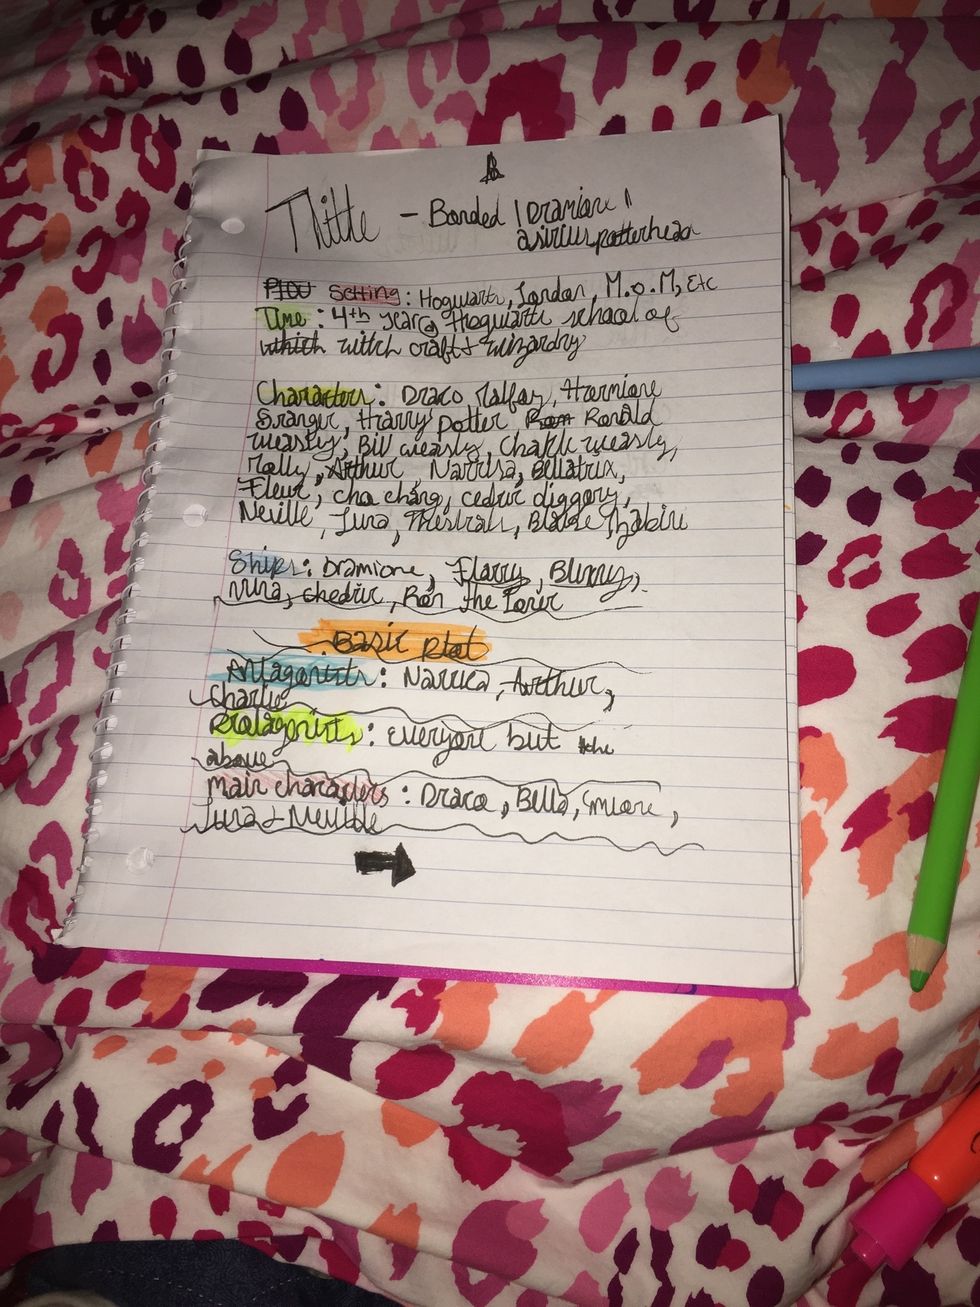 Tittle - Bonded | Dramione |
asiriuspotterhead
PLOU Setting: Hogwarts, London, M.O.M, Etc
Time: 4th year @ Hogwarts school of
which witch craft + wizardry
Characters: Draco Malfoy, Hermione
Granger, Harry Potter Ron Ronald
weasly, Bill weasly, Charlie weasly,
Molly, Arthur Narrisa, Bellatrix,
Fleur, cho chang, cedric diggory,
Neville, Luna, Thestrals, Blaise Zhabini
Ships: Dramione, Flarry, Blinny,
Nuna, chedric, Ron the Loner
Basic plot
Antagonists: Narrica, Arthur,
Charlie
Protagonists: everyone but the
above
main characters: Draco, Bella, Gmione,
Luna + Neville